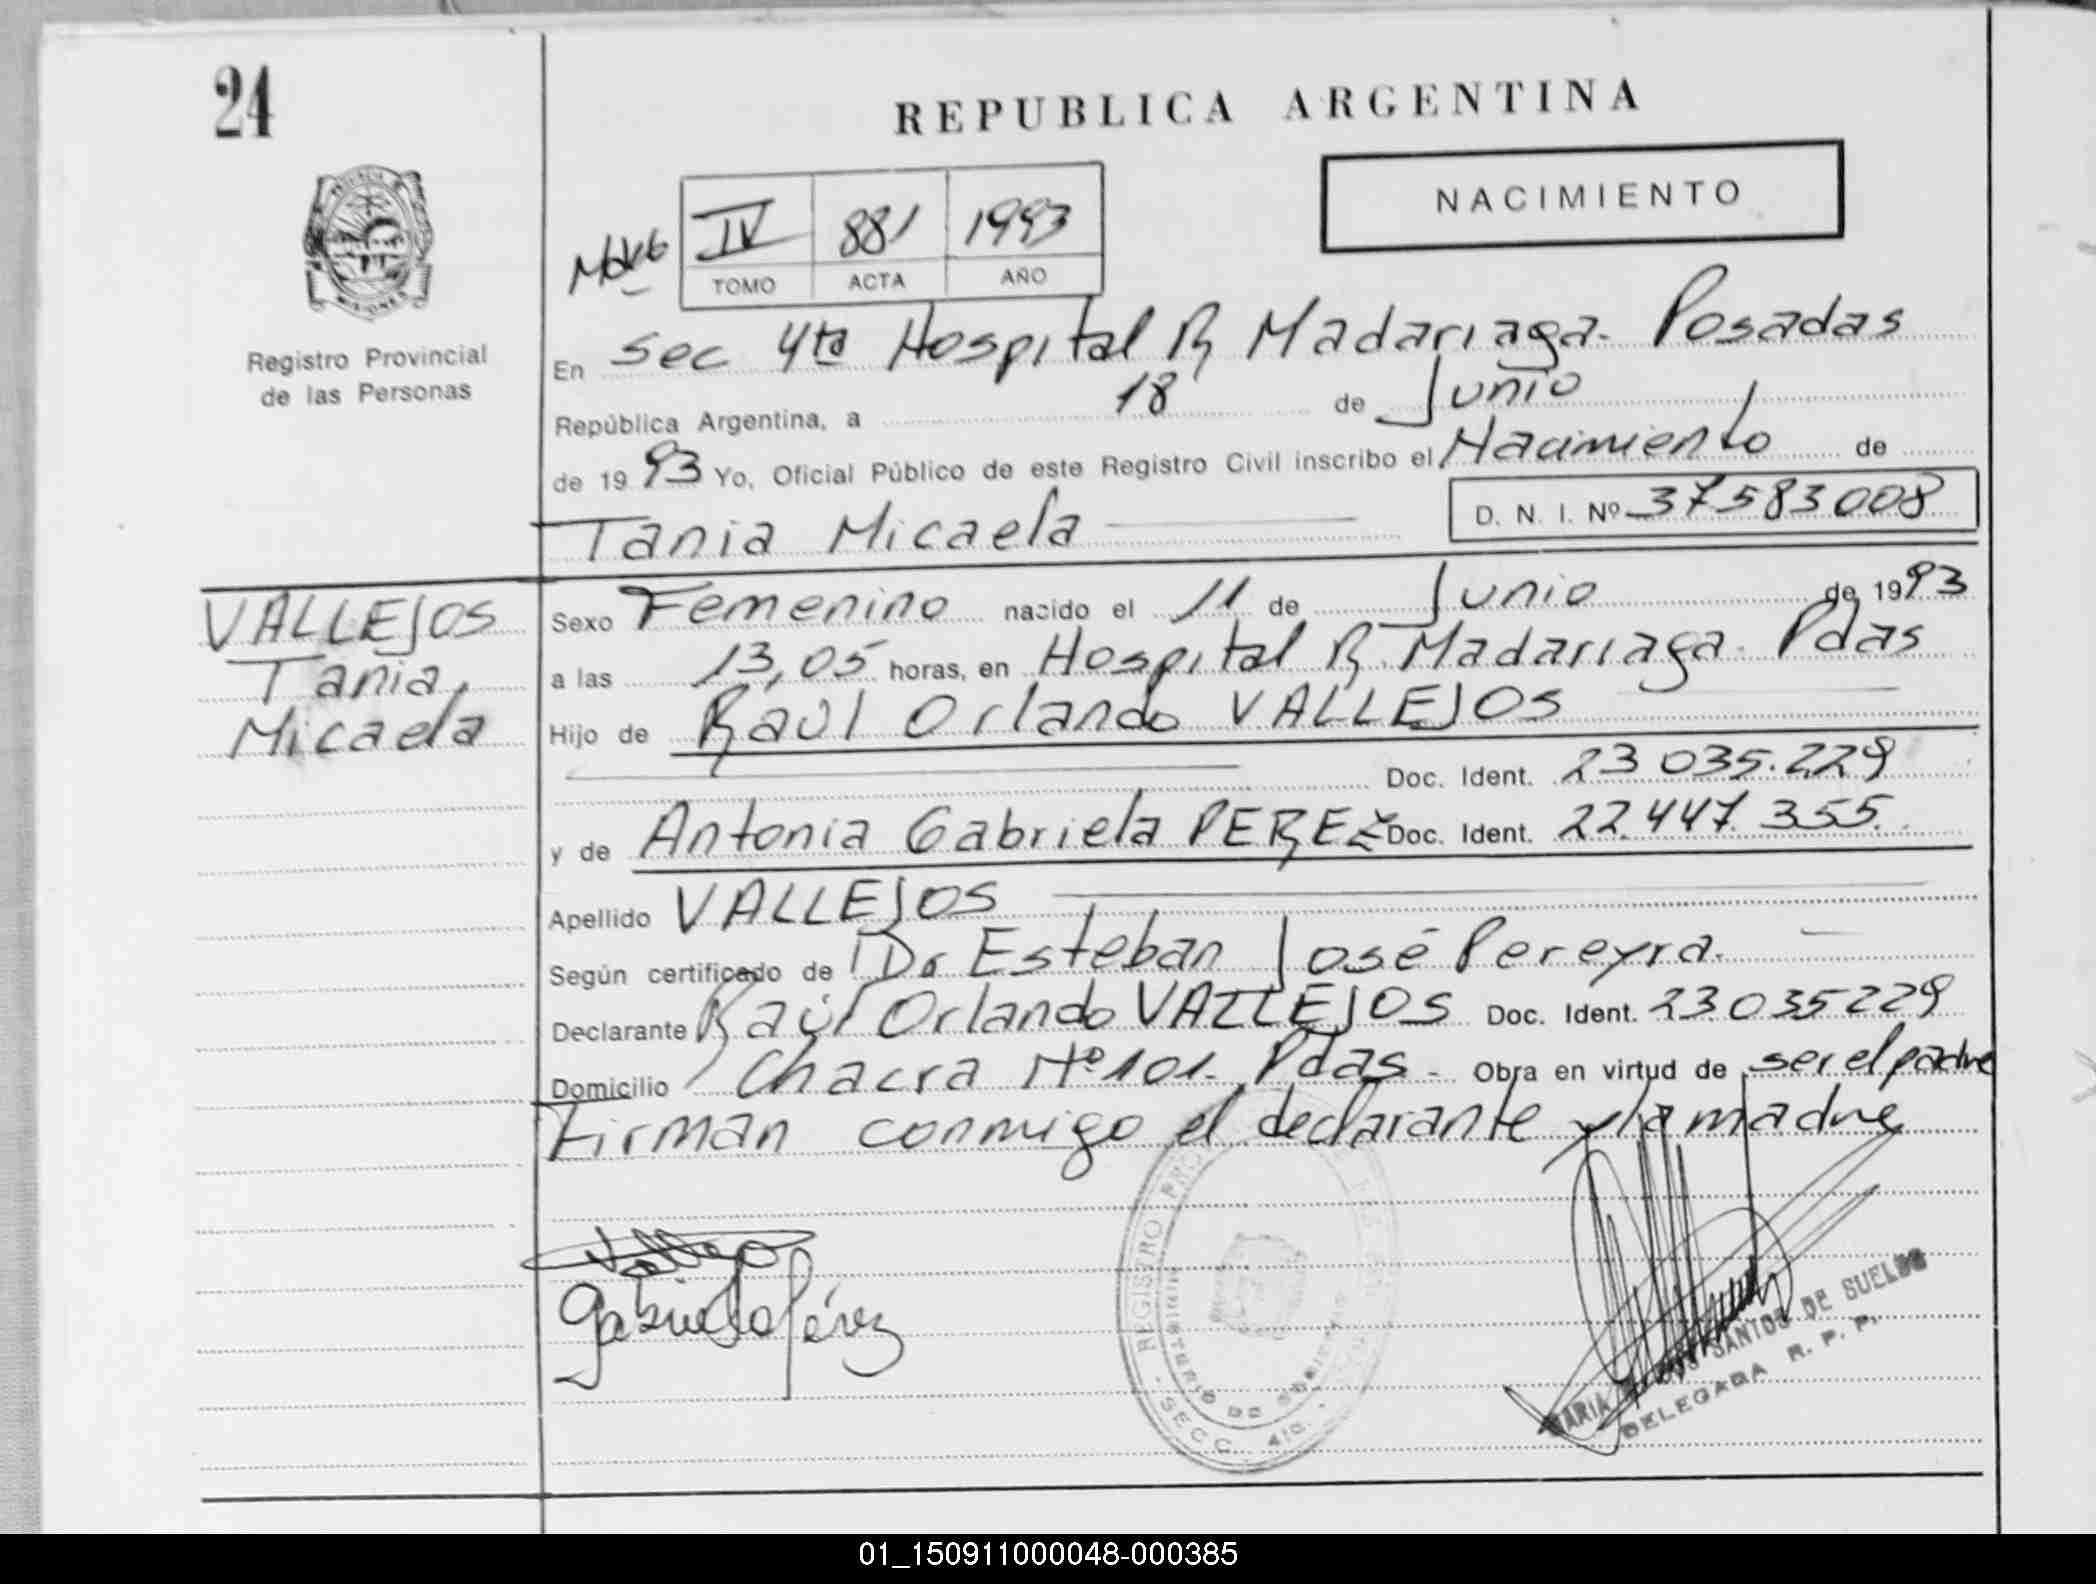 24
REPUBLICA ARGENTINA
NACIMIENTO
IV 881 1993
TOMO ACTA AÑO
Registro Provincial
de las Personas
En Sec 4ta Hospital R Madariaga. Posadas
República Argentina, a 18 de Junio
de 1993 Yo, Oficial Público de este Registro Civil inscribo el Nacimiento de
Tania Micaela D. N. I. Nº 37583008
VALLEJOS
Tania
Micaela
Sexo Femenino nacido el 11 de Junio de 1993
a las 13,05 horas, en Hospital R. Madariaga. Pdas
Hijo de Raúl Orlando VALLEJOS
Doc. Ident. 23 035.229
y de Antonia Gabriela PEREZ Doc. Ident. 22.447.355.
Apellido VALLEJOS
Según certificado de Dr Esteban José Pereyra.
Declarante Raúl Orlando VALLEJOS Doc. Ident. 23.035229
Domicilio Chacra Nº 101. Pdas. Obra en virtud de ser el padre
Firman conmigo el declarante y la madre
Gabriela Pérez
REGISTRO
SECC. 4ta.
SANTOS DE SUELDO
DELEGADA R. P. P.
01_150911000048-000385